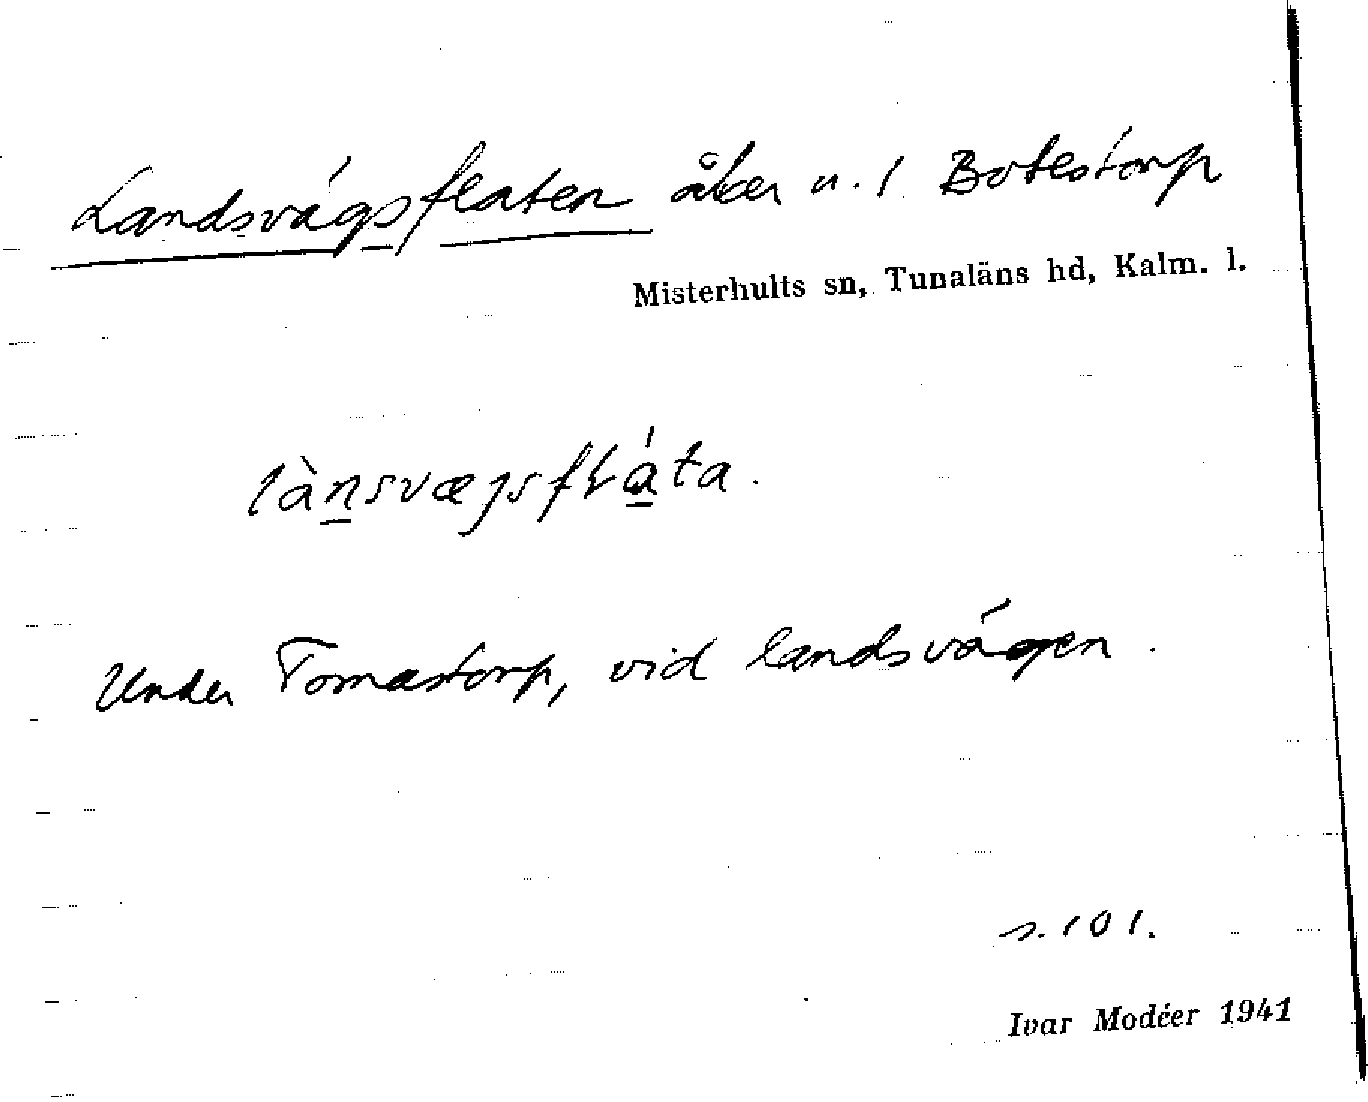 Landsvägsflaten åker u. 1 Botestorp
Misterhults sn, Tunaläns hd, Kalm. l.
Under Tomastorp, vid landsvägen.
s. 101.
Ivar Modéer 1941